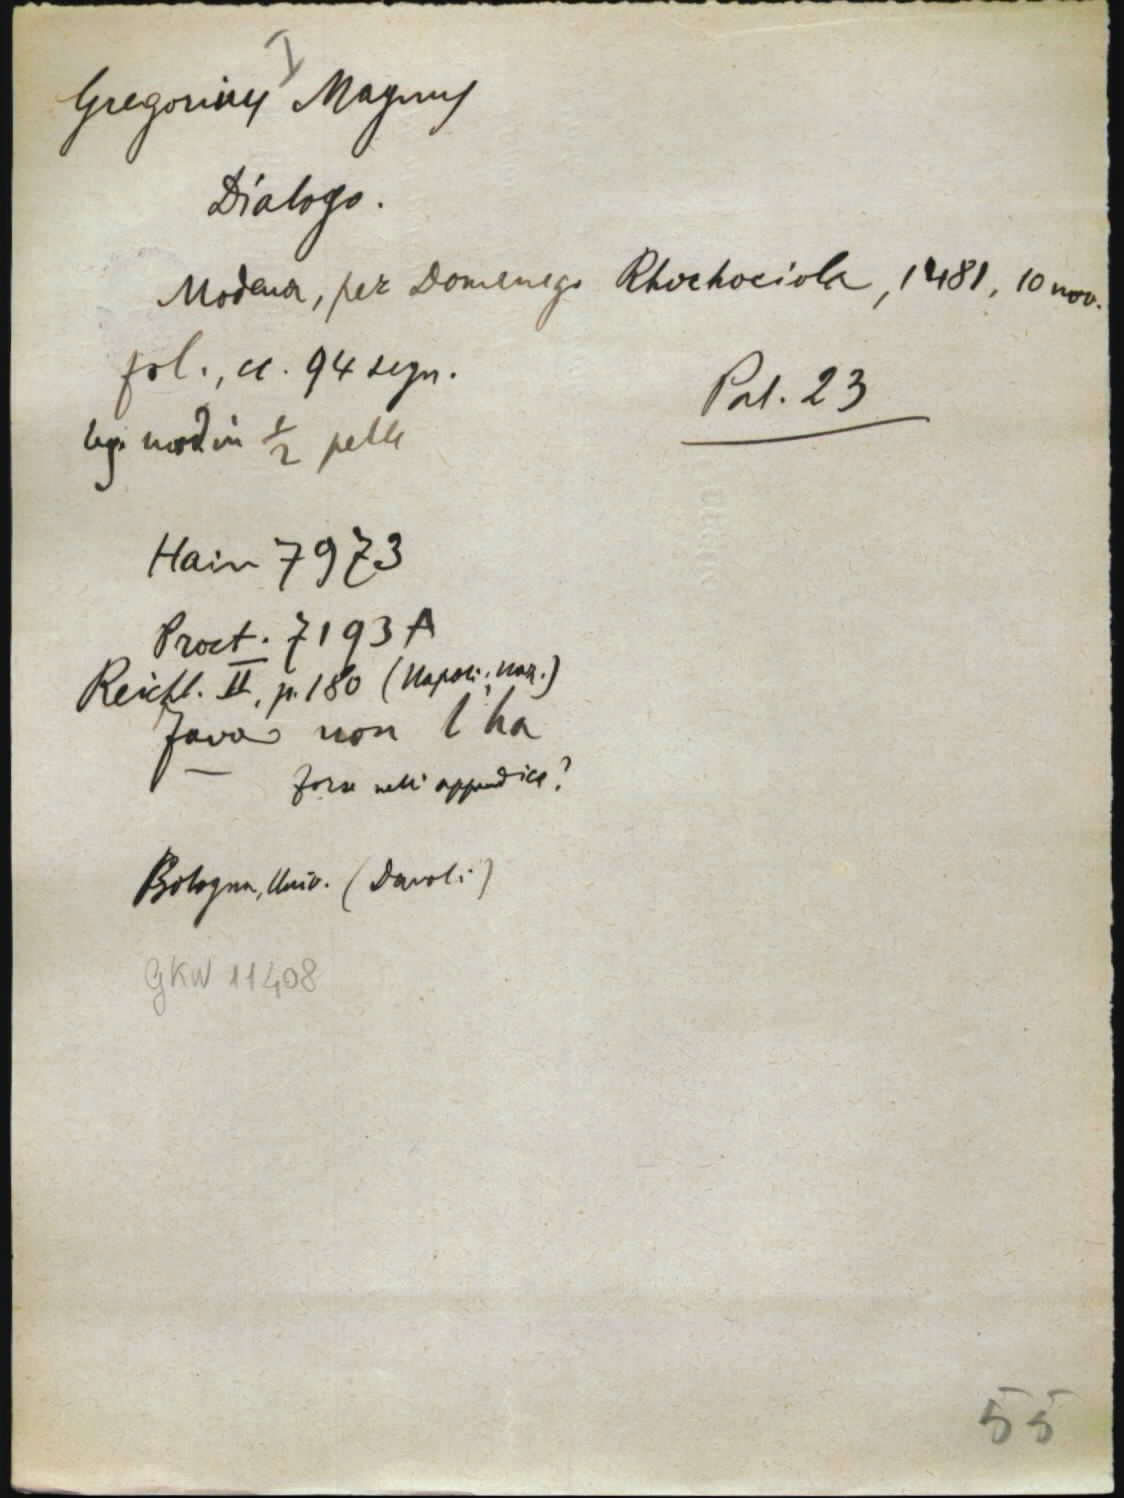 Gregorius I Magnus
Dialogo.
Modena, per Domenego Rhochociola, 1481, 10 nov.
fol., cc. 94 segn.
Pal. 23
leg. mod. in 1/2 pelle
Hain 7973
Proct. 7193 A
Reichl. II, p. 180 (Napoli, Naz.)
Fava non l'ha
forse nelle appendice?
Bologna, Univ. (Davoli)
GKW 11408
55